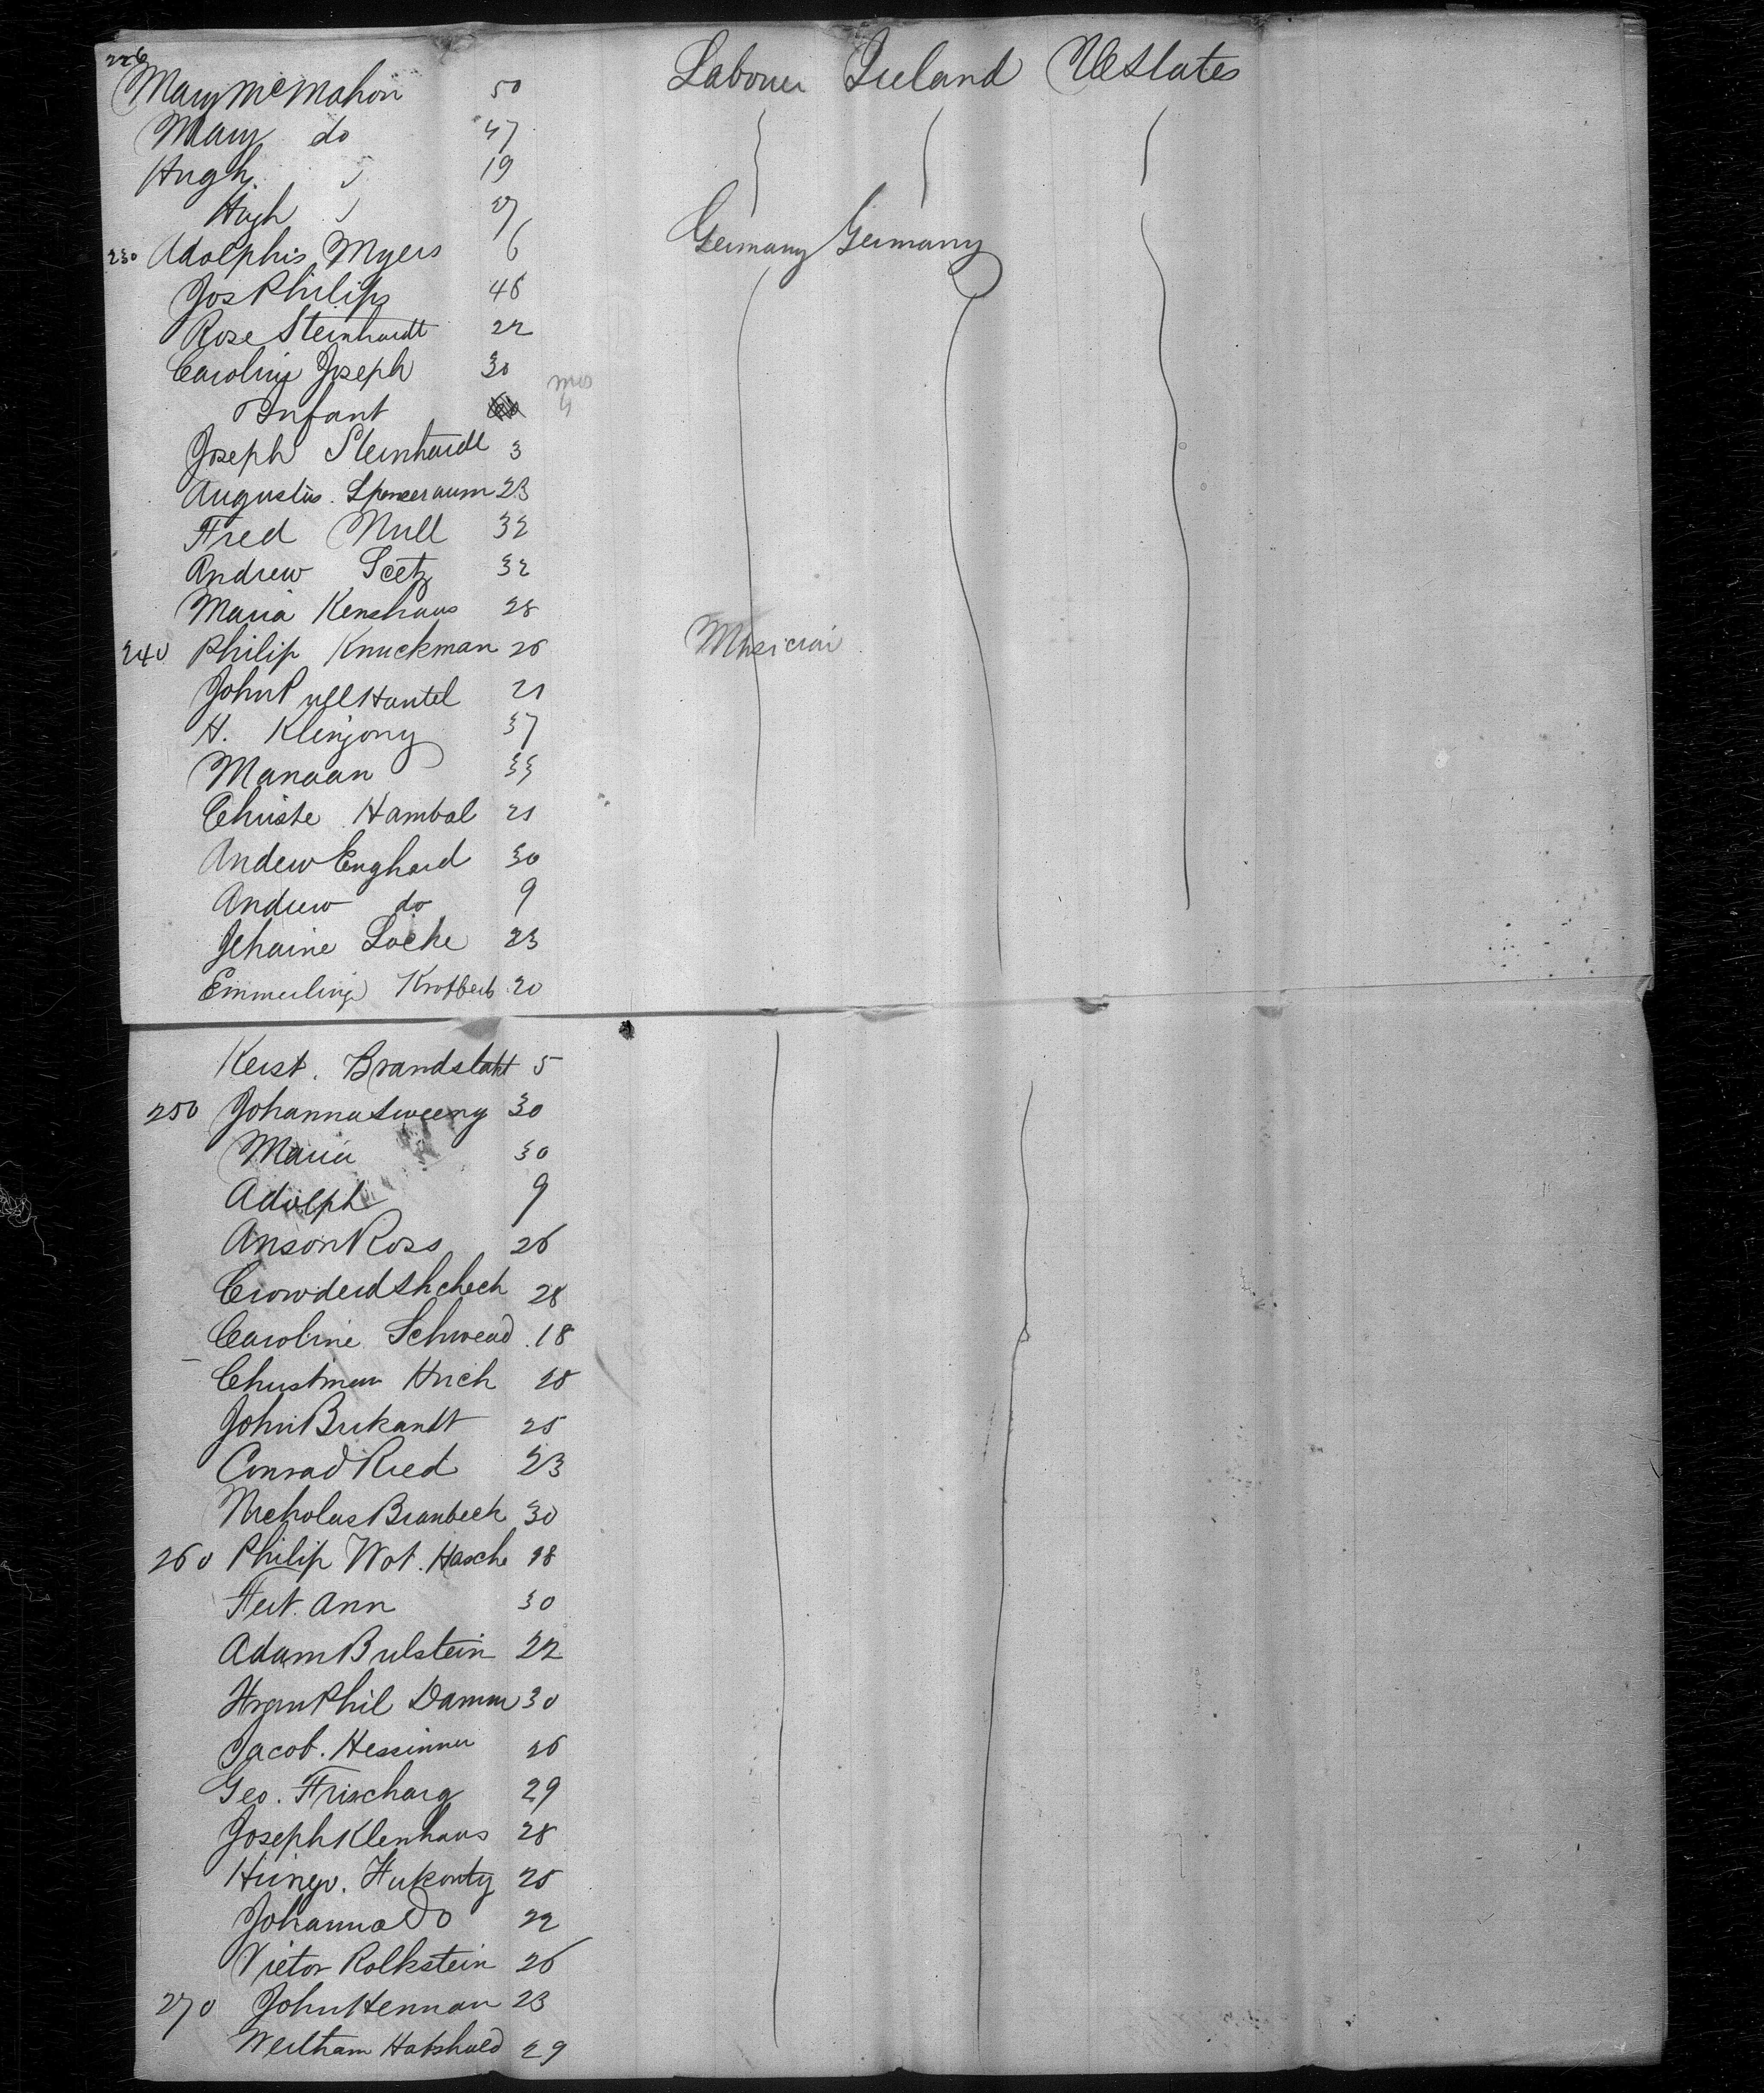 226
Mary McMahon 50 Labourer Ireland U States
Mary do 47
Hugh 19
Hugh 17
230 Adolphis Myers 6 Germany Germany
Jos Philips 46
Rose Steinhardt 22
Caroline Joseph 30
Infant mos 4
Joseph Steinhardt 3
Augustus 23
Fred Null 32
Andrew Seetz 32
Maria Kenshaus 28
240 Philip Knuckman 26 Musician
John 21
H. Klinjong 37
Manaan 33
Christe Hambal 21
Andew Enghard 30
Andrew do 9
Locke 23
Emmerling 20
Kerst. Brandslatt 5
250 Johanna Sweeny 30
Maria 30
Adolph 9
Anson Ross 26
28
Caroline Schwead 18
Hrich 28
John Brikandt 25
Conrad Ried 23
Nicholas Branbeck 30
260 Philip Wot. Hasche 18
Ann 30
Adam Bulstein 22
Phil Damm 30
Jacob. Hessinner 26
Geo. Frischarg 29
Joseph Klenhaus 28
25
Johanna Do 22
Victor Rolkstein 26
270 John Hennan 23
29